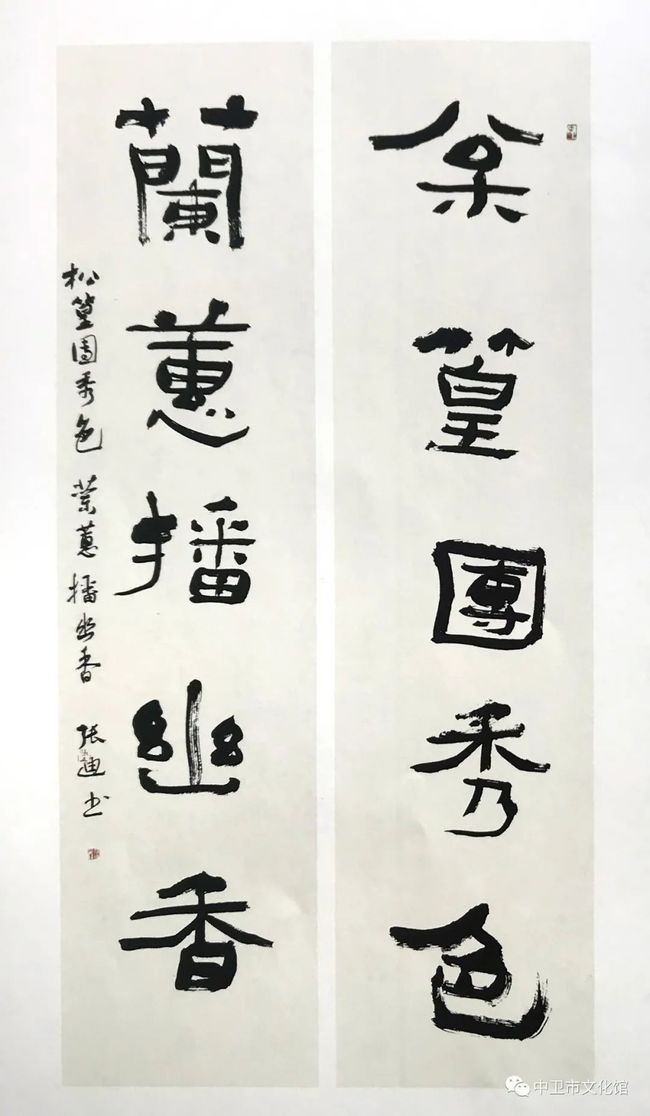 枀篁團秀色
蘭蕙播幽香
松篁團秀色 蘭蕙播幽香 张迪书
中卫市文化馆